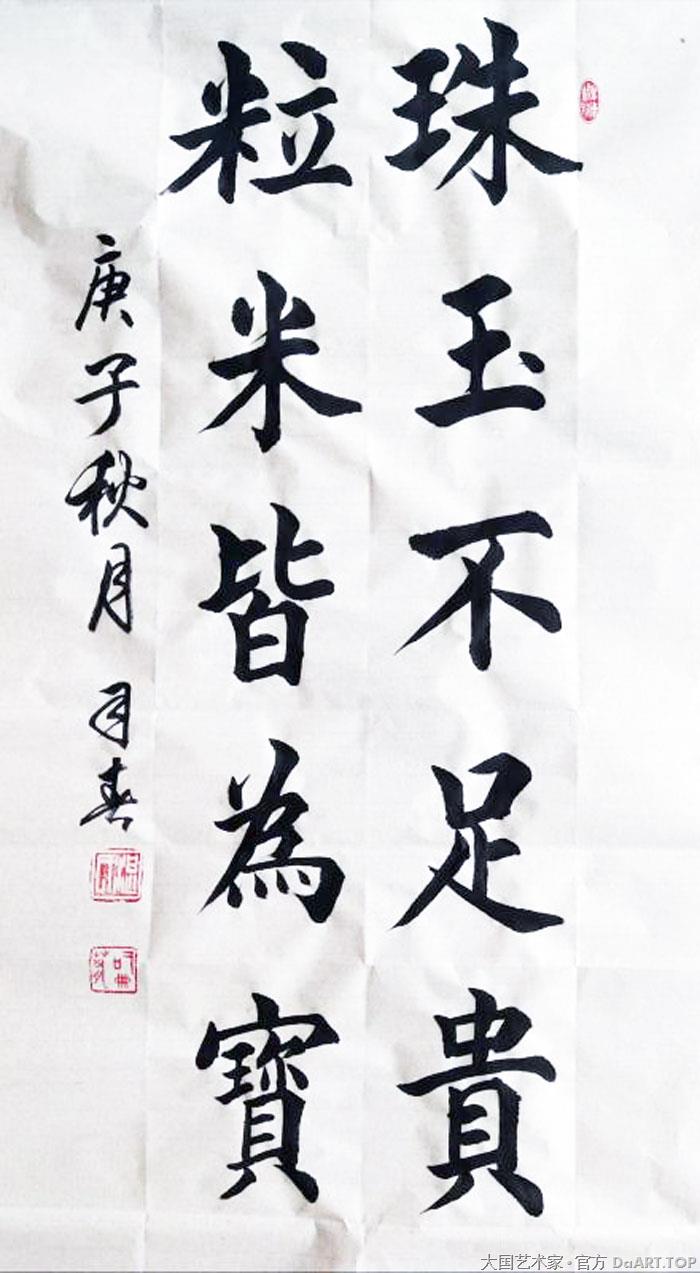 珠玉不足貴
粒米皆為寶
庚子秋月
大国艺术家·官方 DaART.TOP